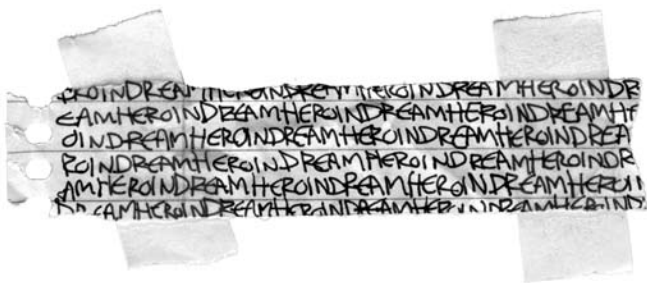 EROINDREAMHEROINDREAMHEROINDREAMHEROINDR
EAMHEROINDREAMHEROINDREAMHEROINDREAMHE
OINDREAMHEROINDREAMHEROINDREAMHEROINDREA
ROINDREAMHEROINDREAMHEROINDREAMHEROINDR
AMHEROINDREAMHEROINDREAMHEROINDREAMHEROI
DREAMHEROINDREAMHEROINDREAMHEROINDREAMHEROIND